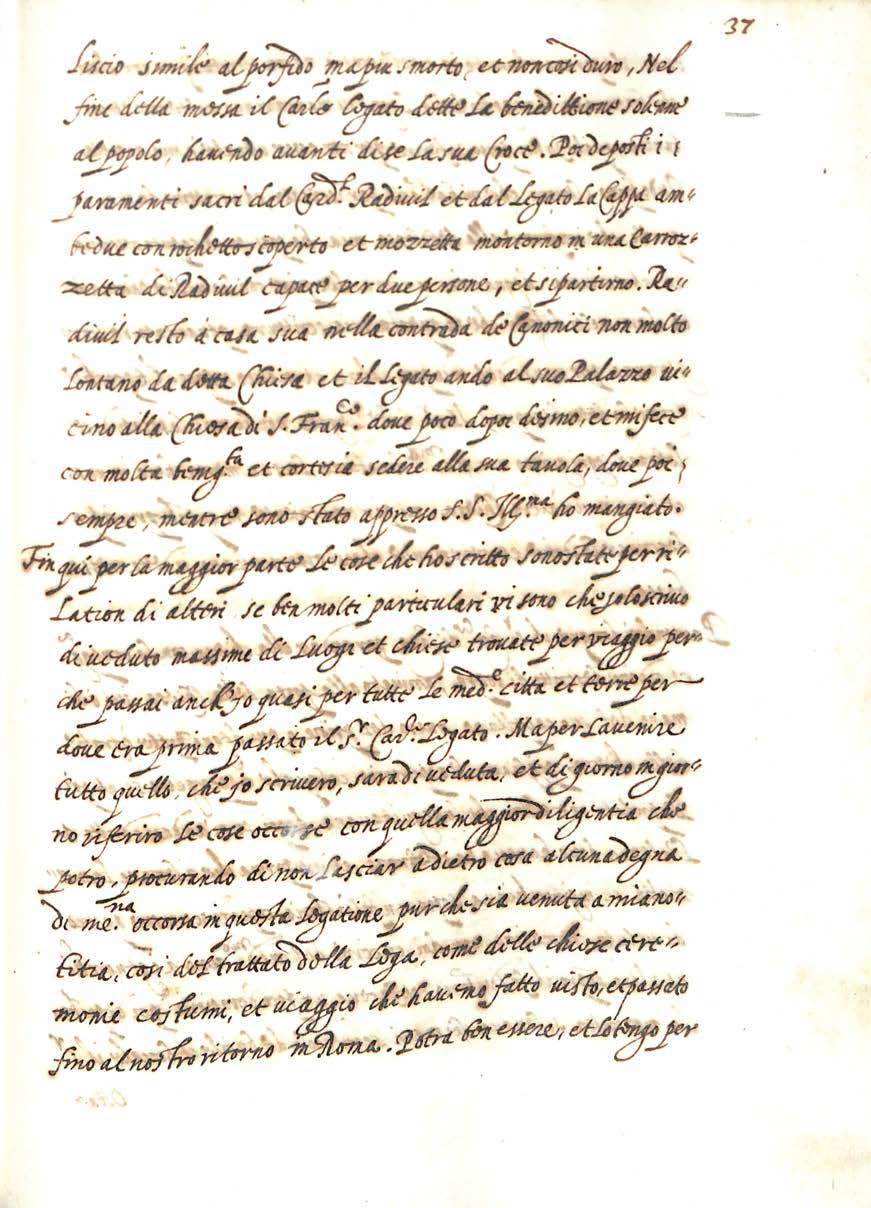 37
Liscio simile al porfido ma piu smorto, et non cosi duro, Nel
fine della messa il Car.le legato dette la benedittione solenne
al popolo, havendo avanti di se la sua Croce. Poi deposti i
paramenti sacri dal Card.l Radivil et dal Legato la Cappa am=
bedue con rochetto scoperto et mozzetta montorno in una Carroz=
zetta di Radivil capace per due persone, et si partirno. Ra=
divil resto à casa sua nella contrada de Canonici non molto
Lontano da detta Chiesa et il Legato ando al suo Palazzo vi=
cino alla Chiesa di S. Fran.co dove poco dopoi desino, et mi fece
con molta benig.ta et cortesia sedere alla sua tavola, dove poi
sempre, mentre sono stato appresso S.S. Ill.ma ho mangiato.
Fin qui per la maggior parte le cose che ho scritto sono state per ri=
Lation di altri se ben molti particulari vi sono che jo lo scrivo
di veduto massime di Luogi et chiese trovate per viaggio per=
che passai anch'jo quasi per tutte le med.e citta et terre per
dove era prima passato il S.r Car.le Legato. Ma per l'avenire
tutto quello, che jo scrivero, sara di veduta, et di giorno in gior=
no riferiro le cose occorse con quella maggior diligentia che
potro, procurando di non lasciar adietro cosa alcuna degna
di me.ria occorsa in questa legatione pur che sia venuta a mia no=
titia, cosi del trattato della Lega, come delle chiese cere=
monie costumi, et viaggio che havemo fatto visto, et passato
fino al nostro ritorno in Roma. Potra ben essere, et lo tengo per